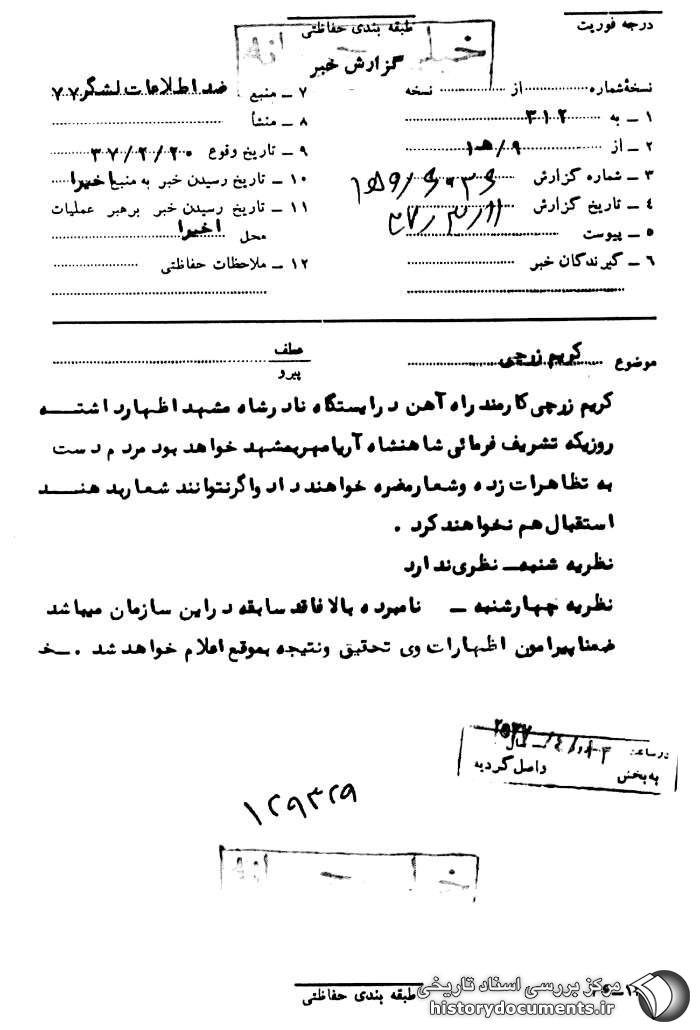 درجه فوریت
طبقه بندی حفاظتی
خیلی محرمانه
گزارش خبر
نسخهٔ شماره ........ از ........ نسخه
۱ ــ به ۳۱۲
۲ ــ از ۹/ه‍۱
۳ ــ شماره گزارش
۴ ــ تاریخ گزارش ۳۷/۳/۱۱
۵ ــ پیوست
۶ ــ گیرندگان خبر
۷ ــ منبع ضد اطلاعات لشگر ۷۷
۸ ــ منشأ
۹ ــ تاریخ وقوع ۳۷/۲/۲۰
۱۰ ــ تاریخ رسیدن خبر به منبع اخیرا
۱۱ ــ تاریخ رسیدن خبر برهبر عملیات
محل اخیرا
۱۲ ــ ملاحظات حفاظتی
موضوع کریم زرچی
عطف
پیرو
کریم زرچی کارمند راه آهن در ایستگاه نادرشاه مشهد اظهار داشتــه
روزیکه تشریف فرمائی شاهنشاه آریامهر بمشهد خواهد بود مردم دست
به تظاهرات زده وشعار مضره خواهند داد واگر نتوانند شعار بد هنــد
استقبال هم نخواهند کرد .
نظریه شنبه ــ نظری ندارد
نظریه چهارشنبه ــ نامبرده بالا فاقد سابقه در این سازمان میباشد
ضمنا پیرامون اظهارات وی تحقیق ونتیجه بموقع اعلام خواهد شد . ــ خ
در ساعت
۲۵۳۷
به بخش واصل گردید
۱۲۹۳۲۹
طبقه بندی حفاظتی
مرکز بررسی اسناد تاریخی
historydocuments.ir